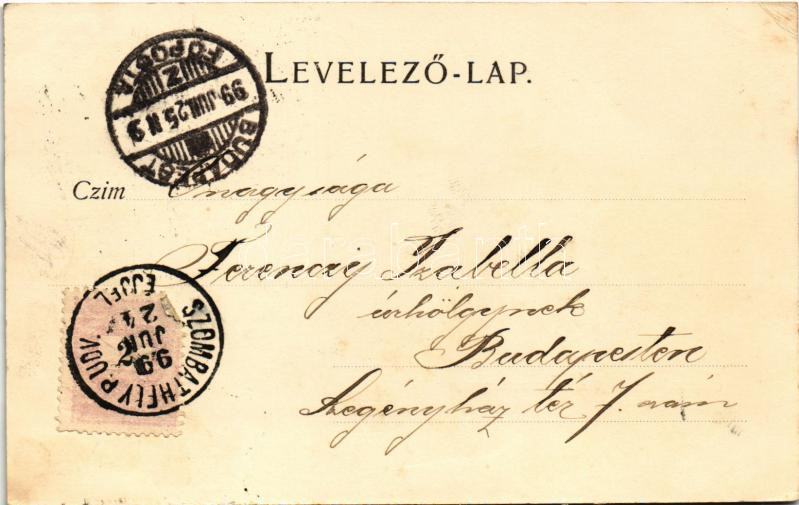 LEVELEZŐ-LAP.
BUDAPEST
99 JUN. 25 N 9
FŐPOSTA
Czim Őnagysága
Ferenczy Izabella
úrhölgynek
Budapesten
Szegényház tér 7. szám
SZOMBATHELY P. UDV.
99 JUN 24
ÉJJEL
darabanth